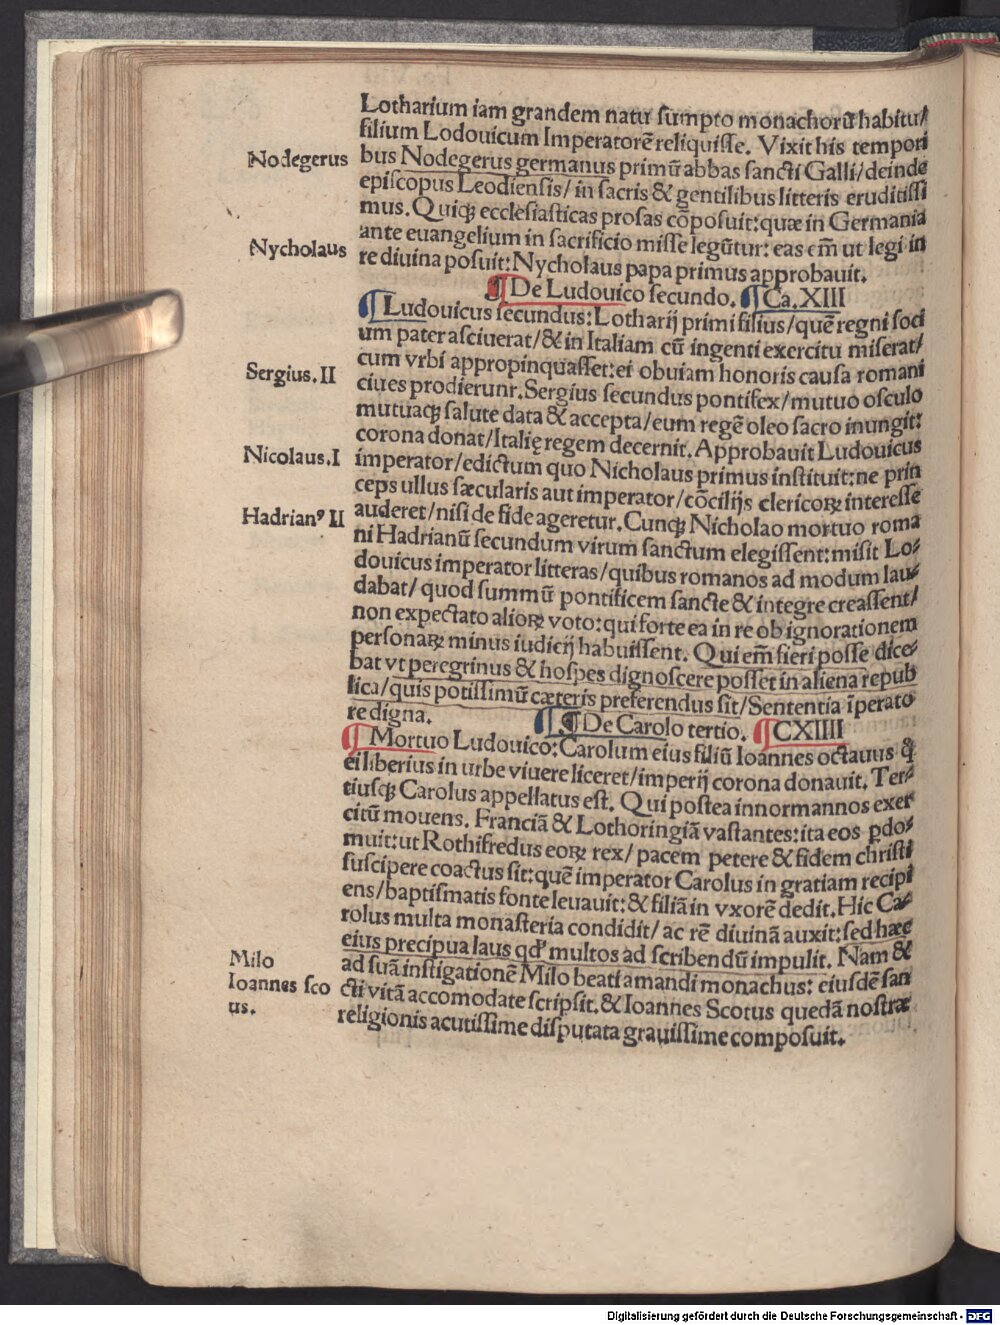 Lotharium iam grandem natu sumpto monachorū habitu/
filium Lodouicum Imperatorē reliquisse. Vixit his tempori
Nodegerus
bus Nodegerus germanus primū abbas sancti Galli/deinde
episcopus Leodiensis/ in sacris & gentilibus litteris eruditissi
mus. Quiqȝ ecclesiasticas prosas cōposuit: quæ in Germania
ante euangelium in sacrificio misse legūtur: eas em̄ ut legi in
Nycholaus
re diuina posuit: Nycholaus papa primus approbauit.
¶ De Ludouico secundo. ¶ Ca. XIII
¶ Ludouicus secundus: Lotharij primi filius/quē regni soci
um pater asciuerat/& in Italiam cū ingenti exercitu miserat/
cum vrbi appropinquasset: ei obuiam honoris causa romani
Sergius. II
ciues prodierunt. Sergius secundus pontifex/mutuo osculo
mutuaqȝ salute data & accepta/eum regē oleo sacro inungit:
corona donat/Italię regem decernit. Approbauit Ludouicus
Nicolaus. I
imperator/edictum quo Nicholaus primus instituit: ne prin
ceps ullus sæcularis aut imperator/cōcilijs clericoꝝ interesse
Hadrianꝰ II
auderet/nisi de fide ageretur. Cunqȝ Nicholao mortuo roma
ni Hadrianū secundum virum sanctum elegissent: misit Lo⸗
douicus imperator litteras/quibus romanos ad modum lau⸗
dabat/ quod summū pontificem sancte & integre creassent/
non expectato alioꝝ voto: qui forte ea in re ob ignorationem
personaꝝ minus iudicij habuissent. Qui em̄ fieri posse dice⸗
bat vt peregrinus & hospes dignoscere posset in aliena repub
lica/quis potissimū cæteris preferendus sit/Sententia īperato
re digna.
¶ De Carolo tertio. ¶ CXIIII
¶ Mortuo Ludouico: Carolum eius filiū Ioannes octauus ꝙ
ei liberius in urbe viuere liceret/imperij corona donauit. Ter⸗
tiusqȝ Carolus appellatus est. Qui postea innormannos exer
citū mouens. Franciā & Lothoringiā vastantes: ita eos ꝑdo⸗
muit: ut Rothifredus eoꝝ rex/ pacem petere & fidem christi
suscipere coactus sit: quē imperator Carolus in gratiam recipi
ens/baptismatis fonte leuauit: & filiā in vxorē dedit. Hic Ca⸗
rolus multa monasteria condidit/ ac rē diuinā auxit: sed hæc
eius precipua laus qd' multos ad scribendū impulit. Nam &
Milo
ad suā instigationē Milo beati amandi monachus: eiusdē san
Ioannes sco
us.
cti vitā accomodate scripsit. & Ioannes Scotus quedā nostræ
religionis acutissime disputata grauissime composuit.
Digitalisierung gefördert durch die Deutsche Forschungsgemeinschaft - DFG